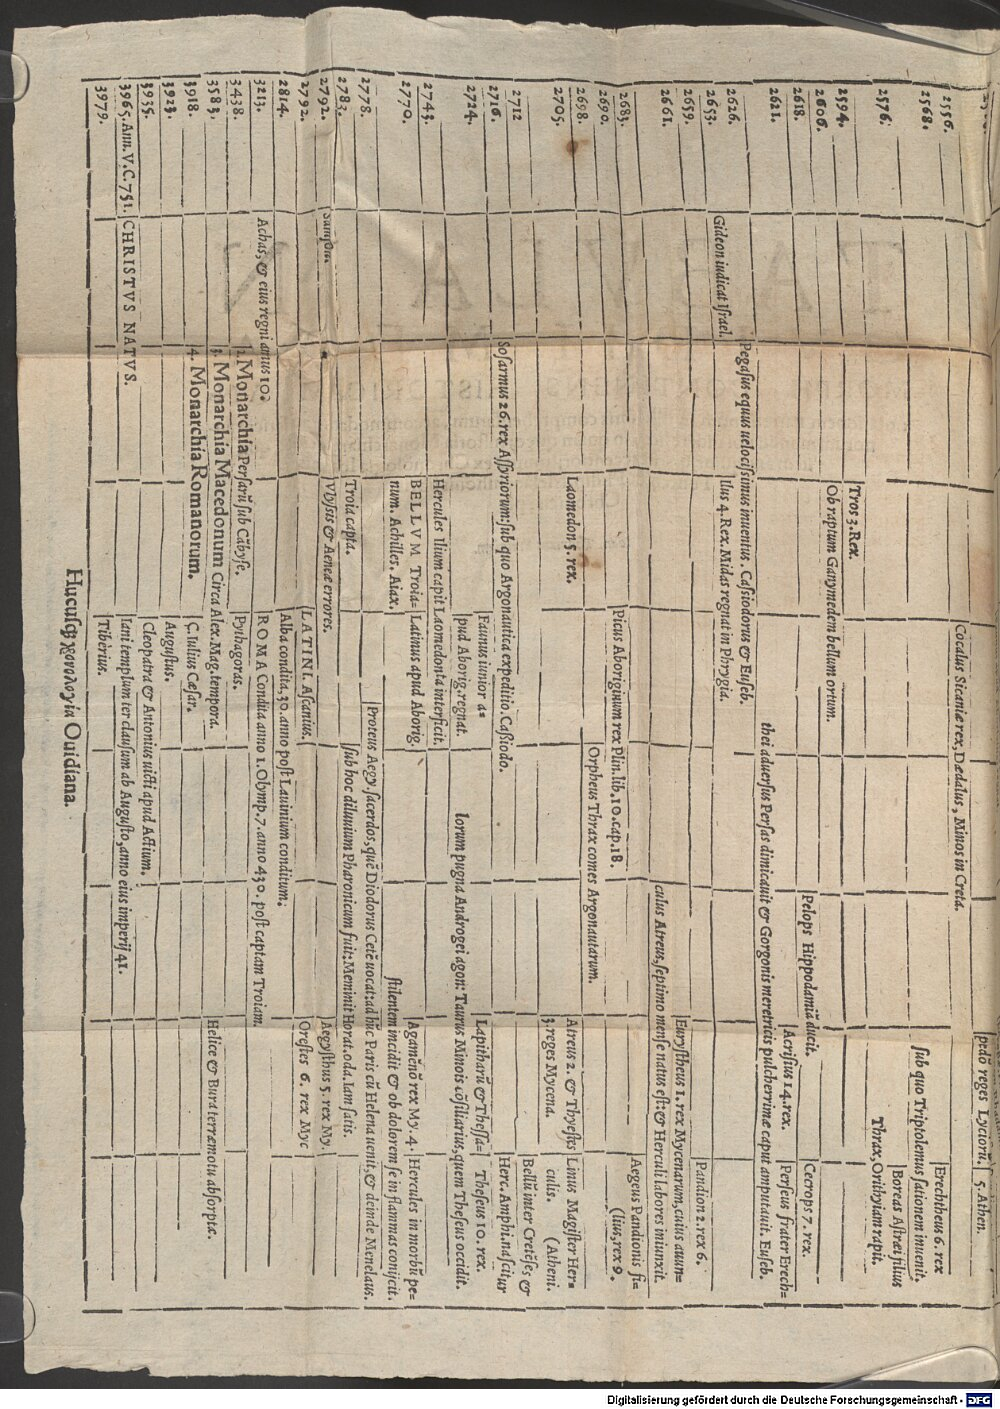 2556. Erechtheus 6. rex
2568. Cocalus Sicaniæ rex, Dædalus, Minos in Creta. ſub quo Triptolemus ſationem inuenit.
pedō reges Lyciorū. 5. Athen.
Boreas Aſtræi filius
2576. Thrax, Orithyiam rapit.
2594. Tros 3. Rex.
2606. Ob raptum Ganymedem bellum ortum. Cecrops 7. rex.
2618. Pelops Hippodamiā ducit. Perſeus frater Erech=
Acriſius 14. rex.
2621. thei aduerſus Perſas dimicauit & Gorgonis meretricis pulcherrimæ caput amputauit. Euſeb.
2626. Pegaſus equus uelociſsimus inuentus. Caſsiodorus & Euſeb.
2653. Gideon iudicat Iſrael. Ilus 4. Rex. Midas regnat in Phrygia. Pandion 2. rex 6.
2659. Euryſtheus 1. rex Mycenarum, cuius auun=
2661. culus Atreus, ſeptimo menſe natus eſt: & Herculi labores iniunxit.
2683. Picus Aboriginum rex Plin. lib. 10. cap. 18. Aegeus Pandionis fi=
(lius, rex 9.
2690. Orpheus Thrax comes Argonautarum.
2698. Laomedon 5. rex. Atreus 2. & Thyeſtes Linus Magiſter Her=
2705. 3. reges Mycena. culis. (Atheni.
2712 Bellū inter Cretēſes &
2716. Soſarmus 26. rex Aſſyriorum: ſub quo Argonautica expeditio. Caſsiodo. Herc. Amphi. naſcitur
2724. Faunus iunior a= Lapitharū & Theſſa= Theſeus 10. rex.
pud Aborig. regnat. lorum pugna Androgei agon: Taurus Minois cōſiliarius, quem Theſeus occidit.
2743. Hercules Ilium capit Laomedonta interficit.
2770. BELLVM Troia= Latinus apud Aborig. Agamēnō rex My. 4. Hercules in morbū pe=
num. Achilles. Aiax. ſtilentem incidit & ob dolorem ſe in flammas conijcit.
2778. Proteus Aegy. ſacerdos, quē Diodorus Cetē uocat: ad hūc Paris cū Helena uenit, & deinde Menelaus.
2783. Troia capta. ſub hoc diluuium Pharonicum fuit: Meminit Horat. oda. Iam ſatis.
2792. Samſon. Vlyſsis & Aeneæ errores. Aegyſthus 5. rex My.
2792. LATINI. Aſcanius. Oreſtes 6. rex Myc
2814. Alba condita, 30. anno poſt Lauinium conditum.
3213. Achas, & eius regni annus 10. ROMA Condita anno 1. Olymp. 7. anno 430. poſt captam Troiam.
3438. 2. Monarchia Perſarū ſub Cābyſe. Pythagoras.
3583. 3. Monarchia Macedonum Circa Alex. Mag. tempora. Helice & Bura terræmotu abſorptæ.
3918. 4. Monarchia Romanorum. C. Iulius Cæſar.
3923. Auguſtus.
3935. Cleopatra & Antonius uicti apud Actium.
3965. Ann. V. C. 751. CHRISTVS NATVS. Iani templum ter clauſum ab Auguſto, anno eius imperij 41.
3979. Tiberius.
Hucuſq; χρονολογία Ouidiana.
Digitalisierung gefördert durch die Deutsche Forschungsgemeinschaft - DFG